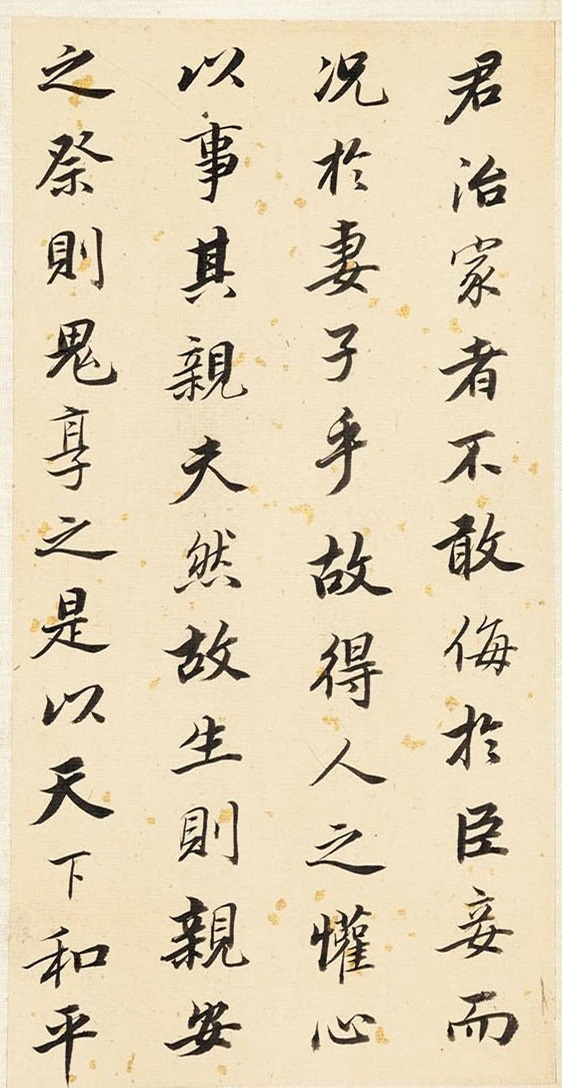 君治家者不敢侮於臣妾而
况於妻子乎故得人之懽心
以事其親夫然故生則親安
之祭則鬼享之是以天下和平